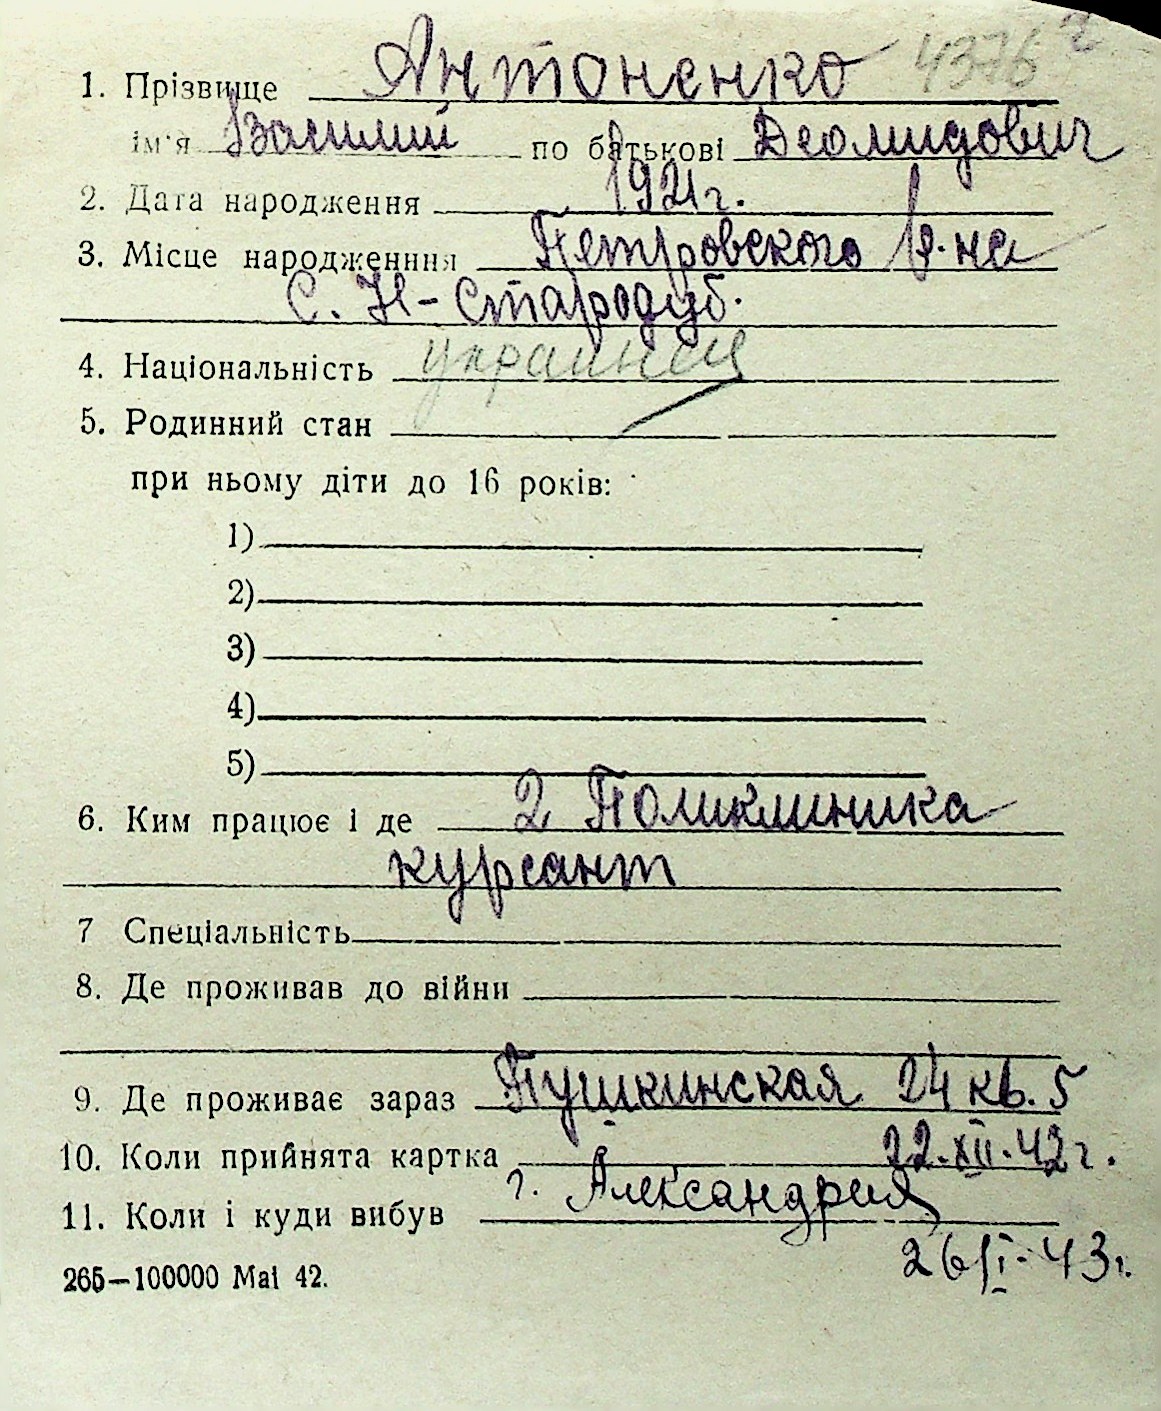 4376 2
1. Прізвище Антоненко
ім'я Василий по батькові Деомидович
2. Дата народження 1921 г.
3. Місце народженння Петровского р-на
С. Н-Стародуб.
4. Національність
5. Родинний стан
при ньому діти до 16 років:
1)
2)
3)
4)
5)
6. Ким працює і де 2 Поликлиника
курсант
7 Спеціальність
8. Де проживав до війни
9. Де проживає зараз Пушкинская 24 кв. 5
10. Коли прийнята картка 22.XII.42 г.
11. Коли і куди вибув г. Александрия
26/I-43 г.
265—100000 Маі 42.